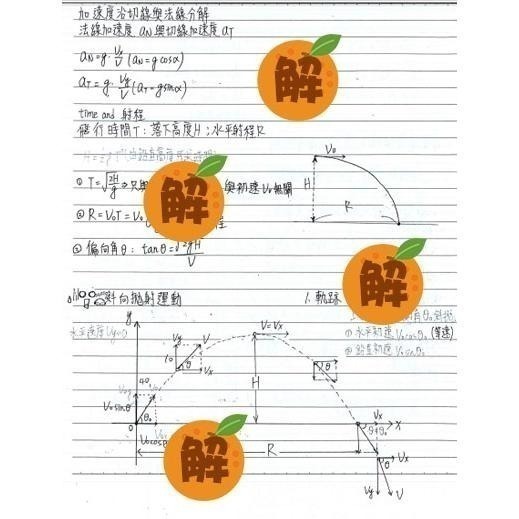 加速度沿切線與法線分解
法線加速度 aN 與切線加速度 aT
aN=g·Vx/V (aN=gcosα)
aT=g·Vy/V (aT=gsinα)
time and 射程
飛行時間T:落下高度H;水平射程R
① T=√2H/g ⇒只與
與初速V0無關
② R=V0T=V0
程
③ 偏向角θ:tanθ=√2gH/V
V0
H
R
斜向拋射運動
1. 軌跡
角θ0斜拋
① 水平初速V0cosθ0 (等速)
② 鉛直初速V0sinθ0
水平速度Vy=0
y
Vy
V
θ
Vx
V=Vx
H
θ
V0sinθ
θ0
0
V0cosθ
R
Vx
X
θ
Vx
Vy
V
解
解
解
解